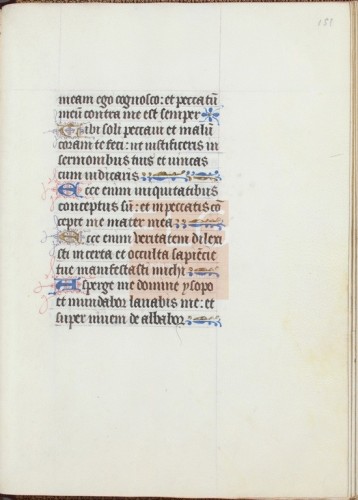 151
meam ego cognosco: et peccatū
meū contra me est semper
Tibi soli peccaui et malū
coram te feci: ut iustificeris in
sermonibus tuis et uincas
cum iudicaris
Ecce enim iniquitatibus
conceptus sū: et in peccatis cō
cepit me mater mea
Ecce enim ueritatem dilexi
sti incerta et occulta sapiēcie
tue manifestasti michi
Asperge me domine ysopo
et mundabor lauabis me: et
super niuem de albabor